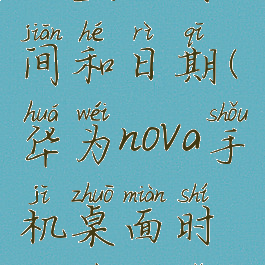 jiān hé rì qī
间和日期(
huá wéi shǒu
华为nova手
jī zhuō miàn shí
机桌面时